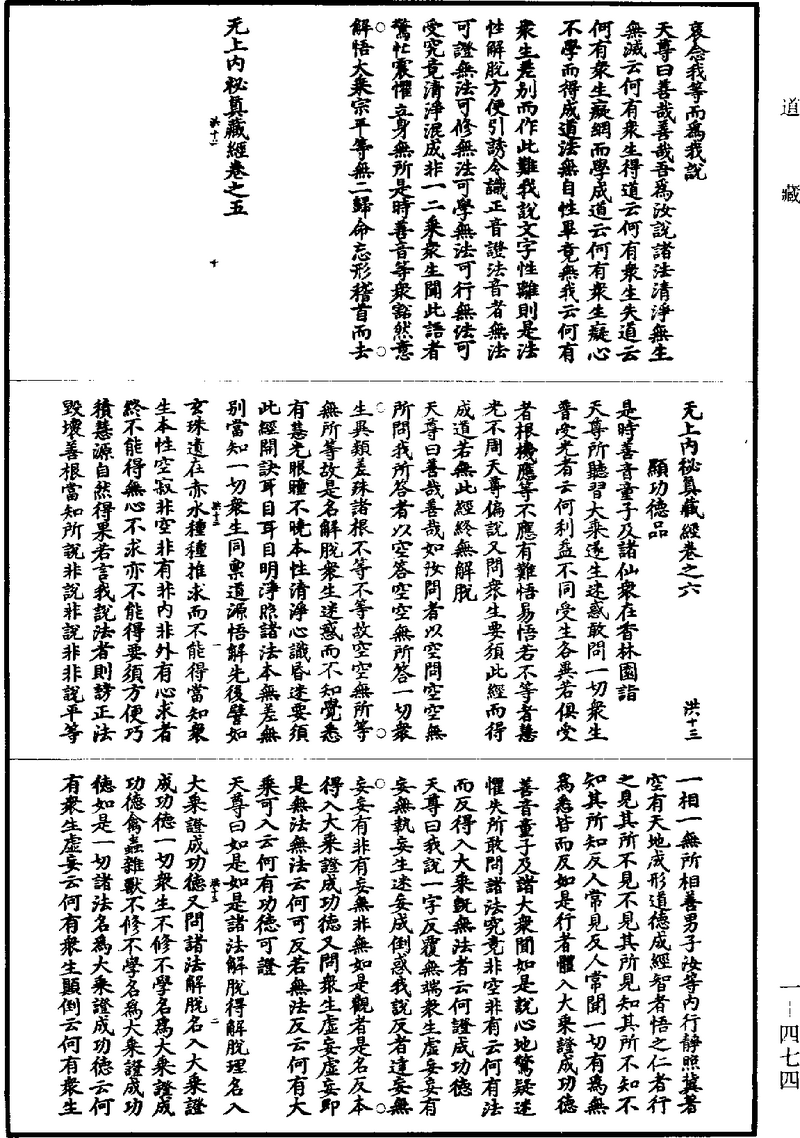 道藏
一—四七四
哀念我等而為我說
天尊曰善哉善哉吾為汝說諸法清淨無生
無滅云何有衆生得道云何有衆生失道云
何有衆生癡網而學成道云何有衆生癡心
不學而得成道法無自性畢竟無我云何有
衆生差別而作此難我說文字性離則是法
性解脫方便引誘令識正音證法音者無法
可證無法可修無法可學無法可行無法可
受究竟清淨混成非一二乘衆生聞此語者
驚忙震懼立身無所是時善音等衆豁然意
解悟大乘宗平等無二歸命忘形稽首而去
无上內祕真藏經卷之五
洪十二
十
无上內祕真藏經卷之六
洪十三
顯功德品
是時善音童子及諸仙衆在香林園詣
天尊所聽習大乘遂生迷惑敢問一切衆生
普受光者云何利益不同受生各異若俱受
者根機應等不應有難悟易悟若不等者慧
光不周天尊偏說又問衆生要須此經而得
成道若無此經終無解脫
天尊曰善哉善哉如汝問者以空問空空無
所問我所答者以空答空空無所答一切衆
生異類差殊諸根不等不等故空空無所等
無所等故是名解脫衆生迷惑而不知覺悉
有慧光眼瞳不曉本性清淨心識昏迷要須
此經開訣耳目耳目明淨照諸法本無差無
別當知一切衆生同稟道源悟解先後譬如
洪十三
一
玄珠遺在赤水種種推求而不能得當知衆
生本性空寂非空非有非內非外有心求者
終不能得無心不求亦不能得要須方便巧
積慧源自然得果若言我說法者則謗正法
毀壞善根當知所說非說非說非非說平等
一相一無所相善男子汝等內行靜照冀著
空有天地成形道德成經智者悟之仁者行
之見其所不見不見其所見知其所不知不
知其所知反人常見反人常聞一切有為無
為悉皆而反如是行者體入大乘證成功德
善音童子及諸大衆聞如是說心地驚疑迷
懼失所敢問諸法究竟非空非有云何有法
而反得入大乘既無法者云何證成功德
天尊曰我說一字反覆無端衆生虛妄妄有
妄無執妄生迷妄成倒惑我說反者達妄無
妄妄有非有妄無非無如是觀者是名反本
得入大乘證成功德又問衆生虛妄虛妄即
是無法無法云何可反若無法反云何有大
乘可入云何有功德可證
天尊曰如是如是諸法解脫得解脫理名入
洪十三
二
大乘證成功德又問諸法解脫名入大乘證
成功德一切衆生不修不學名為大乘證成
功德禽蟲雜獸不修不學名為大乘證成功
德如是一切諸法名為大乘證成功德云何
有衆生虛妄云何有衆生顛倒云何有衆生